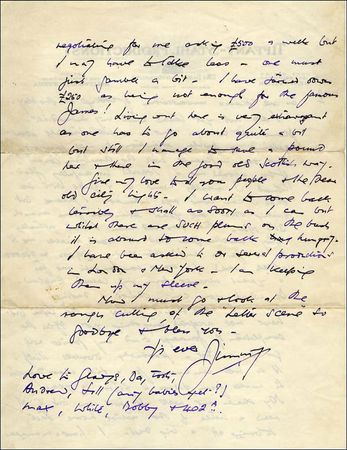 negotiating for me asking £500 a week but
I may have to take less - one must
just gamble a bit - I have turned down
£250 as being not enough for the famous
James! Living out here is very extravagant
as one has to go about quite a bit
but still I manage to save a pound
here & there in the good old Scottish way.
Give my love to all your people & the dear
old city. I want to come back
& shall as soon as I can but
whilst there are such plums on the bush
it is absurd to come back hungry.
I have been asked to do several productions
in London & New York - I am keeping
them up my sleeve.
Now I must go & look at the
rough cutting of the "Letter Scene" so
goodbye & bless you -
Yrs ever Jimmy
Love to Gladys,
Andrew, (any babies yet?)
Max, Bobby